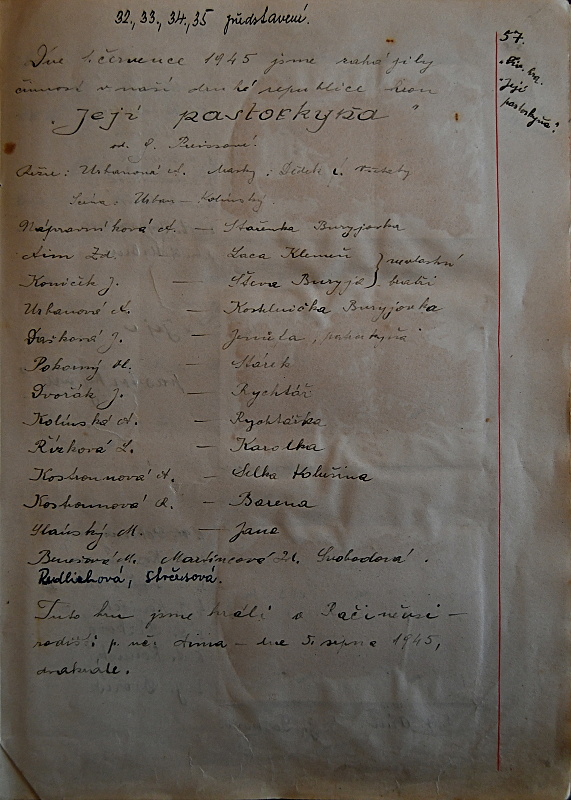 32., 33., 34., 35 představení.
57.
Div. hra.
"Její
pastorkyňa".
Dne 1. července 1945 jsme zahájily
činnost v naší druhé republice hrou
"Její pastorkyňa"
od G. Preissové.
Režie: Urbanová A. Masky: Dědek z
Scéna: Urban – Kolínský.
Nápravníková A. – Stařenka Buryjovka
Aim Zd. Laca Klemeň } nevlastní
Koníček J. — Števa Buryja } bratři
Urbanová A. — Kostelnička Buryjovka
Dašková J. — Jenůfa, pastorkyňa
Pokorný M. — Stárek
Dvořák J. — Rychtář
Kolínská A. — Rychtářka
Řízková L. — Karolka
Kostrounová A. — Selka Kolušina
Kostounová R. — Barena
M. — Jana
Benešová M. Martincová Zd. Svobodová.
Redlichová, Strčesová.
Tuto hru jsme hráli v Račiněvsi –
rodišti p. uč. Aima – dne 5. srpna 1945,
dvakráte.